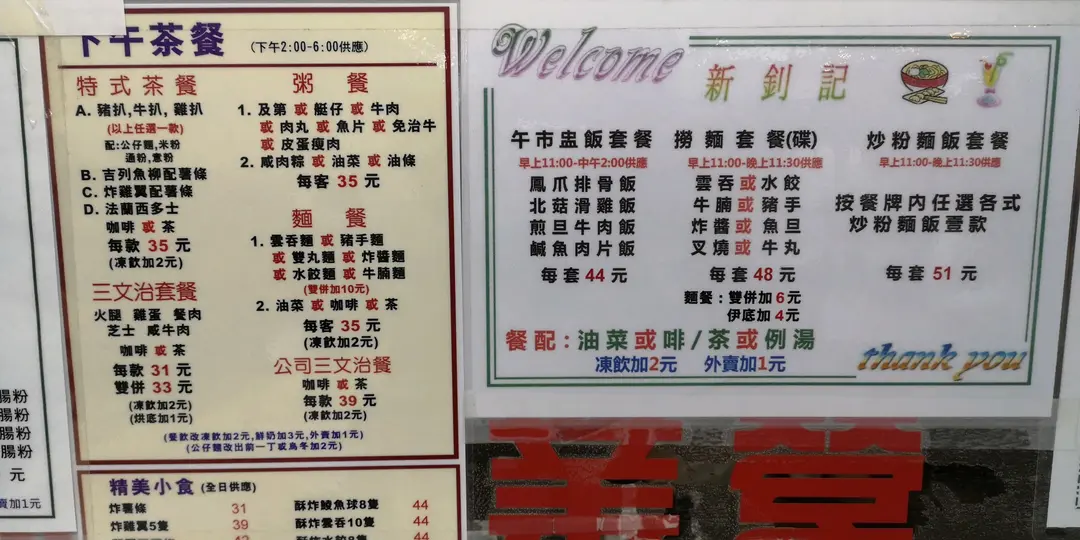 下午茶餐 (下午2:00-6:00供應)
特式茶餐
A. 豬扒,牛扒,雞扒
(以上任選一款)
配:公仔麵,米粉
通粉,意粉
B. 吉列魚柳配薯條
C. 炸雞翼配薯條
D. 法蘭西多士
咖啡 或 茶
每款 35 元
(凍飲加2元)
三文治套餐
火腿 雞蛋 餐肉
芝士 咸牛肉
咖啡 或 茶
每款 31 元
雙併 33 元
(凍飲加2元)
(烘底加1元)
粥 餐
1. 及第 或 艇仔 或 牛肉
或 肉丸 或 魚片 或 免治牛
或 皮蛋瘦肉
2. 咸肉粽 或 油菜 或 油條
每客 35 元
麵 餐
1. 雲吞麵 或 豬手麵
或 雙丸麵 或 炸醬麵
或 水餃麵 或 牛腩麵
(雙併加10元)
2. 油菜 或 咖啡 或 茶
每客 35 元
(凍飲加2元)
公司三文治餐
咖啡 或 茶
每款 39 元
(凍飲加2元)
(餐飲改凍飲加2元,鮮奶加3元,外賣加1元)
(公仔麵改出前一丁或烏冬加2元)
精美小食 (全日供應)
炸薯條 31
炸雞翼5隻 39
酥炸鯪魚球8隻 44
酥炸雲吞10隻 44
酥炸水餃8隻 44
Welcome
新釗記
午市盅飯套餐
早上11:00-中午2:00供應
鳳爪排骨飯
北菇滑雞飯
煎旦牛肉飯
鹹魚肉片飯
每套 44 元
撈麵 套餐(碟)
早上11:00-晚上11:30供應
雲吞或水餃
牛腩或豬手
炸醬或魚旦
叉燒或牛丸
每套 48 元
麵餐：雙併加 6 元
伊底加 4 元
炒粉麵飯套餐
早上11:00-晚上11:30供應
按餐牌內任選各式
炒粉麵飯壹款
每套 51 元
餐配：油菜或啡/茶或例湯
凍飲加2元 外賣加1元
thank you
腸粉
腸粉
腸粉
腸粉
元
賣加1元